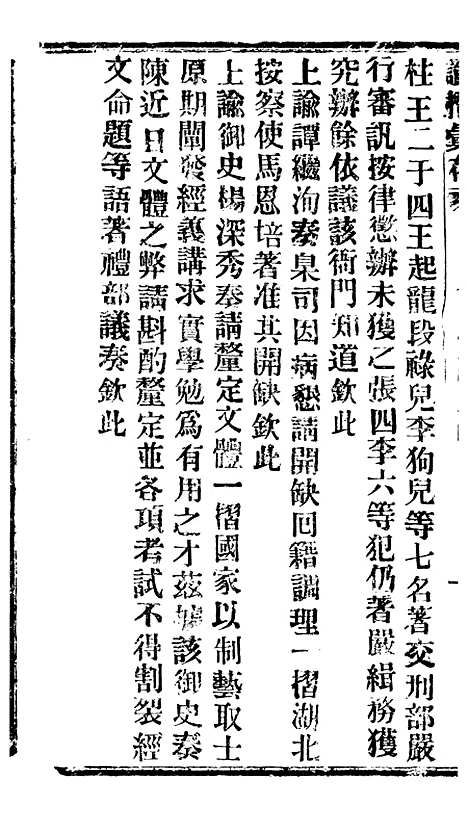 諭摺彙存
柱王二于四王起龍段祿兒李狗兒等七名著交刑部嚴
行審訊按律懲辦未獲之張四李六等犯仍著嚴緝務獲
究辦餘依議該衙門知道欽此
上諭譚繼洵奏臬司因病懇請開缺回籍調理一摺湖北
按察使馬恩培著准其開缺欽此
上諭御史楊深秀奏請釐定文體一摺國家以制藝取士
原期闡發經義講求實學勉爲有用之才茲據該御史奏
陳近日文體之弊請斟酌釐定並各項考試不得割裂經
文命題等語著禮部議奏欽此